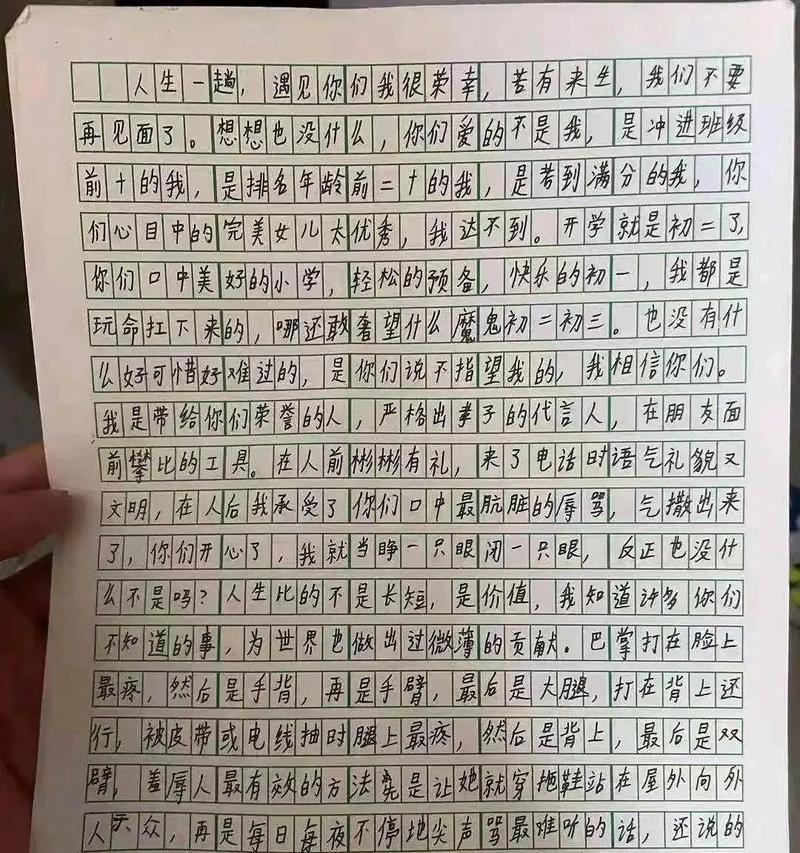 人生一趟，遇见你们我很荣幸，若有来生，我们不要
再见面了。想想也没什么，你们爱的不是我，是冲进班级
前十的我，是排名年龄前二十的我，是考到满分的我，你
们心目中的完美女儿太优秀，我达不到。开学就是初二了，
你们口中美好的小学，轻松的预备，快乐的初一，我都是
玩命扛下来的，哪还敢奢望什么魔鬼初二初三。也没有什
么好可惜好难过的，是你们说不指望我的，我相信你们。
我是带给你们荣誉的人，严格出孝子的代言人，在朋友面
前攀比的工具。在人前彬彬有礼，来了电话时语气礼貌又
文明，在人后我承受了你们口中最肮脏的辱骂，气撒出来
了，你们开心了，我就当睁一只眼闭一只眼，反正也没什
么不是吗？人生比的不是长短，是价值，我知道许多你们
不知道的事，为世界也做出过微薄的贡献。巴掌打在脸上
最疼，然后是手背，再是手臂，最后是大腿，打在背上还
行，被皮带或电线抽时腿上最疼，然后是背上，最后是双
臂，羞辱人最有效的方法是让她就穿拖鞋站在屋外向外
人示众，再是每日每夜不停地尖声骂最难听的话，还说的